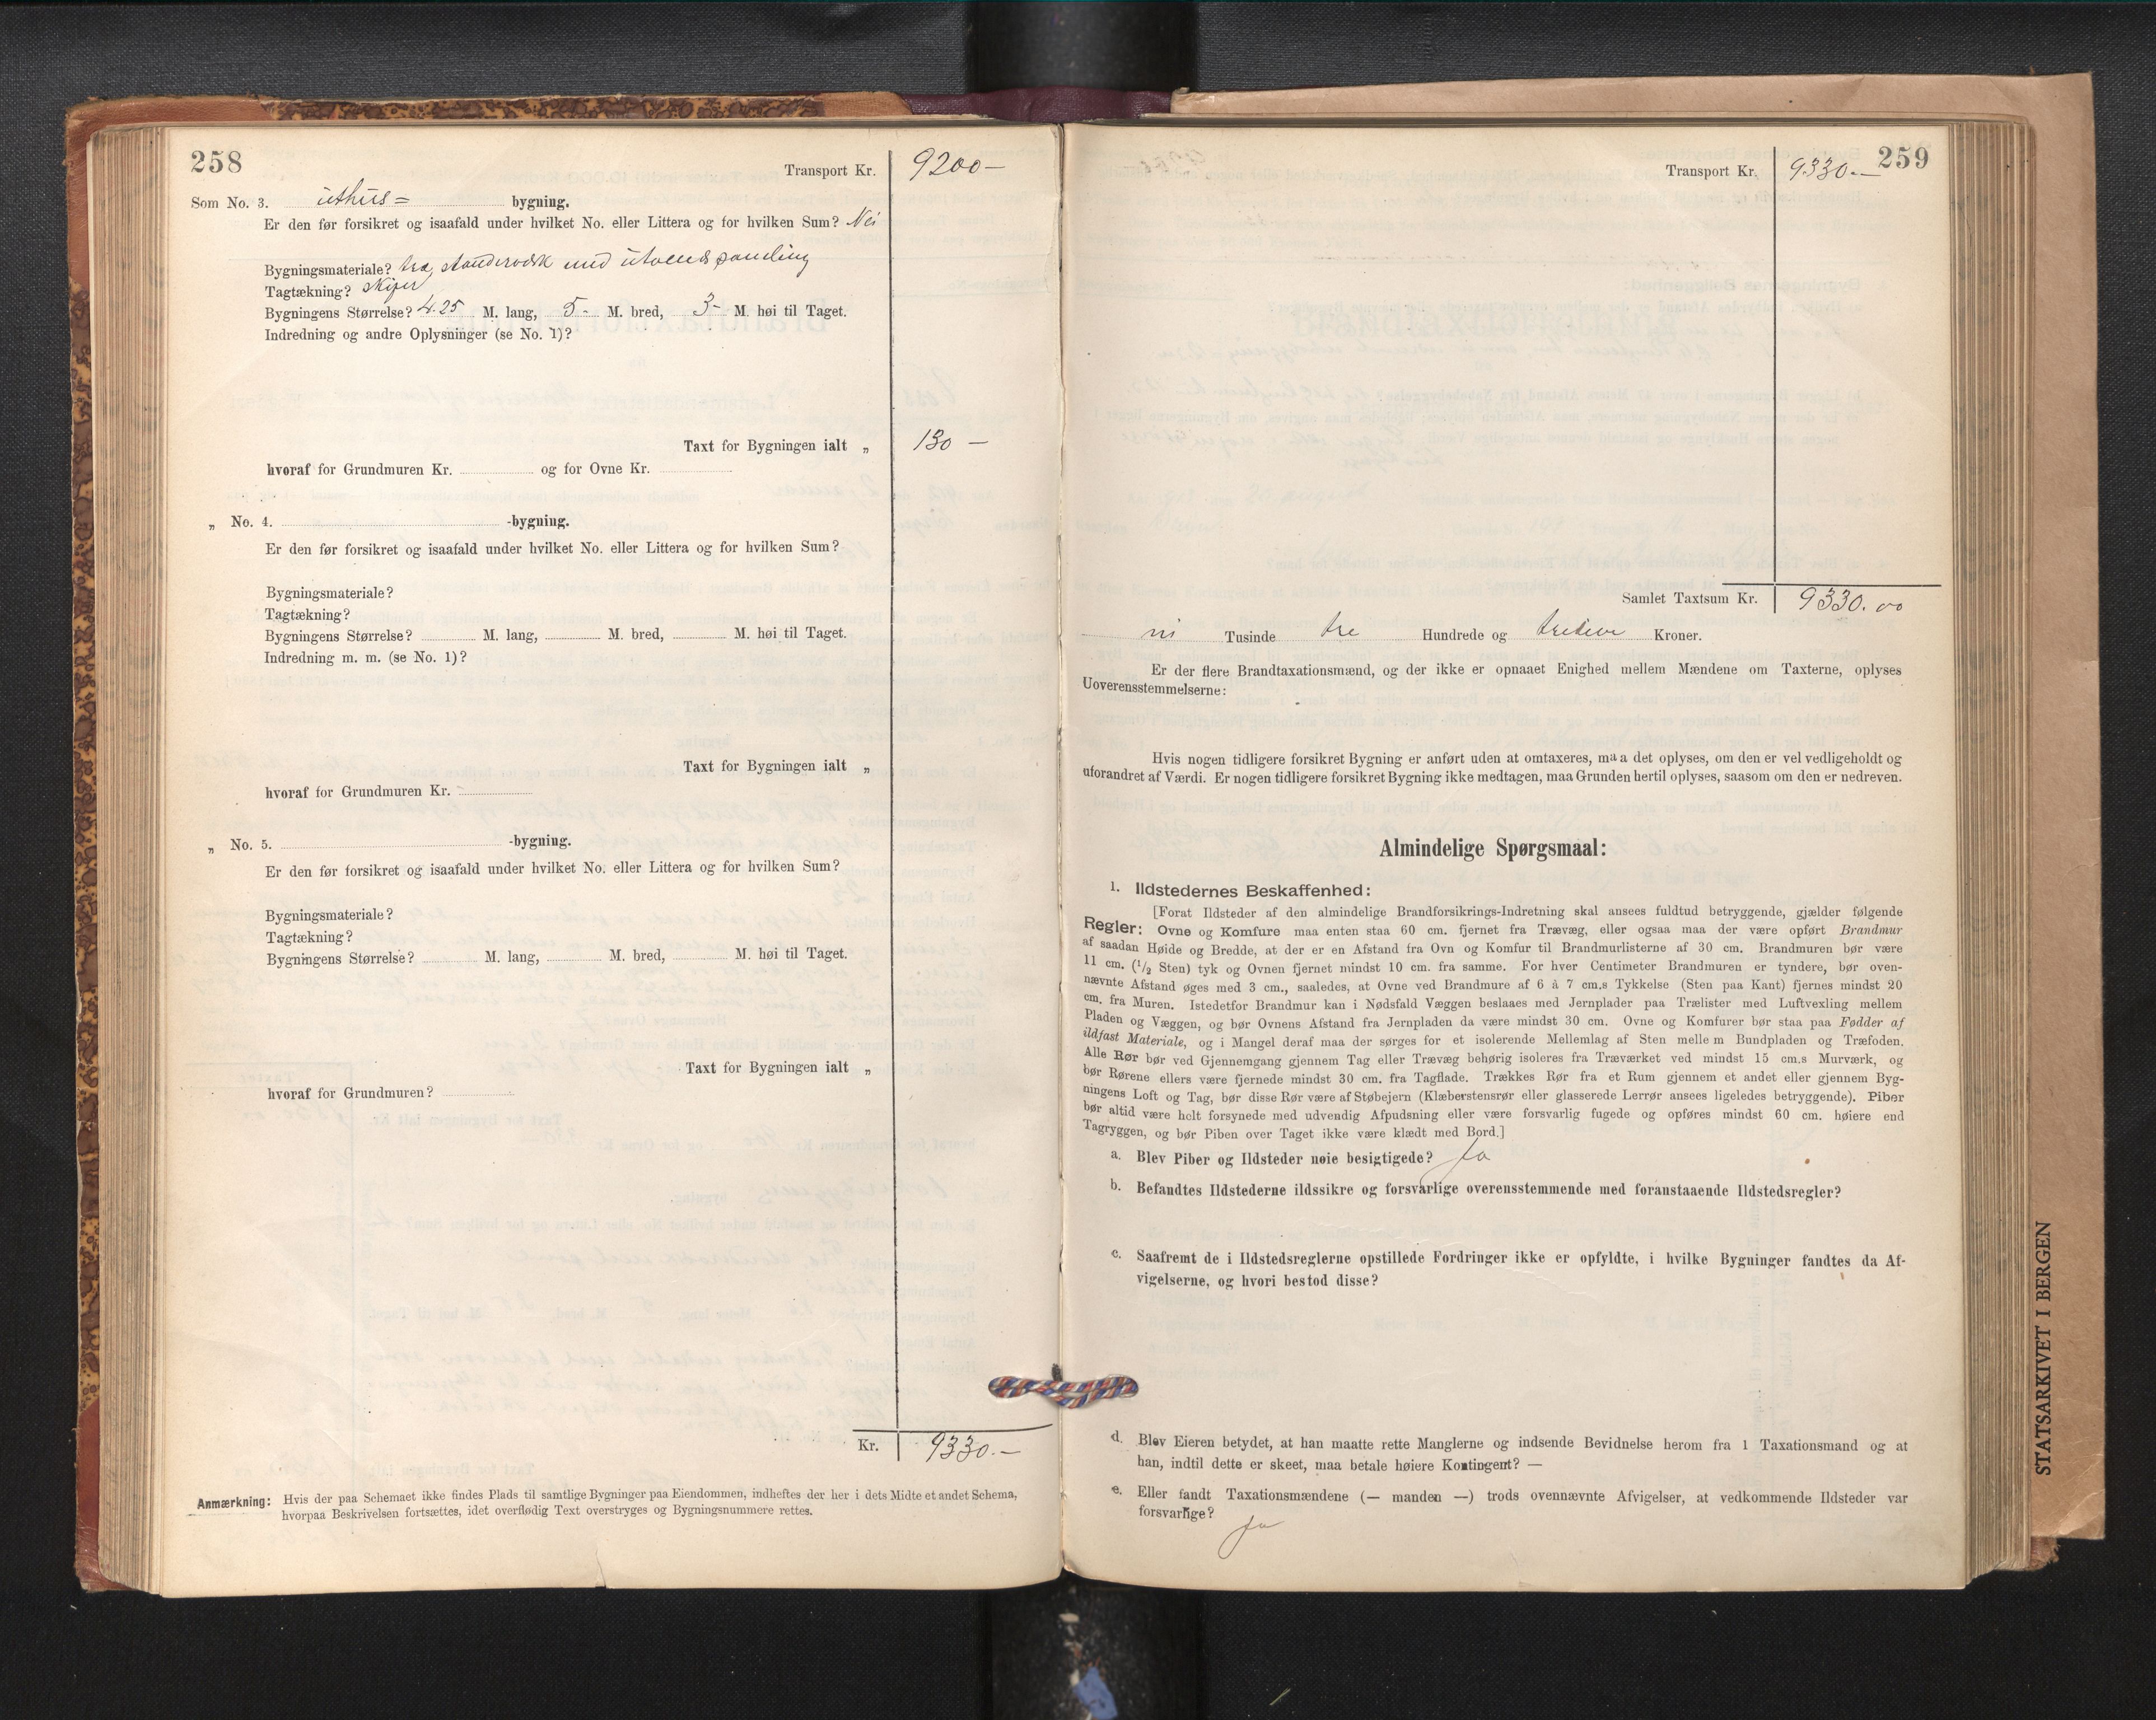 258
Transport Kr. 9200 —
Som No. 3. uthus= bygning.
Er den før forsikret og isaafald under hvilket No. eller Littera og for hvilken Sum? Nei
Bygningsmateriale? træ, standerværk med utvendspanding
Tagtækning? skifer
Bygningens Størrelse? 4.25 M. lang, 5- M. bred, 3- M. høi til Taget.
Indredning og andre Oplysninger (se No. 1)?
Taxt for Bygningen ialt „ 130 —
hvoraf for Grundmuren Kr. og for Ovne Kr.
„ No. 4. -bygning.
Er den før forsikret og isaafald under hvilket No. eller Littera og for hvilken Sum?
Bygningsmateriale?
Tagtækning?
Bygningens Størrelse? M. lang, M. bred, M. høi til Taget.
Indredning m. m. (se No. 1)?
Taxt for Bygningen ialt „
hvoraf for Grundmuren Kr.
„ No. 5. -bygning.
Er den før forsikret og isaafald under hvilket No. eller Littera og for hvilken Sum?
Bygningsmateriale?
Tagtækning?
Bygningens Størrelse? M. lang, M. bred, M. høi til Taget.
Taxt for Bygningen ialt „
hvoraf for Grundmuren?
Kr. 9330.—
Anmærkning: Hvis der paa Schemaet ikke findes Plads til samtlige Bygninger paa Eiendommen, indheftes der her i dets Midte et andet Schema,
hvorpaa Beskrivelsen fortsættes, idet overflødig Text overstryges og Bygningsnummere rettes.
259
Transport Kr. 9330.—
Samlet Taxtsum Kr. 9330.00
ni Tusinde tre Hundrede og tredive Kroner.
Er der flere Brandtaxationsmænd, og der ikke er opnaaet Enighed mellem Mændene om Taxterne, oplyses
Uoverensstemmelserne:
Hvis nogen tidligere forsikret Bygning er anført uden at omtaxeres, maa det oplyses, om den er vel vedligeholdt og
uforandret af Værdi. Er nogen tidligere forsikret Bygning ikke medtagen, maa Grunden hertil oplyses, saasom om den er nedreven.
Almindelige Spørgsmaal:
1. Ildstedernes Beskaffenhed:
[Forat Ildsteder af den almindelige Brandforsikrings-Indretning skal ansees fuldtud betryggende, gjælder følgende
Regler: Ovne og Komfure maa enten staa 60 cm. fjernet fra Trævæg, eller ogsaa maa der være opført Brandmur
af saadan Høide og Bredde, at der er en Afstand fra Ovn og Komfur til Brandmurlisterne af 30 cm. Brandmuren bør være
11 cm. (1/2 Sten) tyk og Ovnen fjernet mindst 10 cm. fra samme. For hver Centimeter Brandmuren er tyndere, bør oven-
nævnte Afstand øges med 3 cm., saaledes, at Ovne ved Brandmure af 6 à 7 cm.s Tykkelse (Sten paa Kant) fjernes mindst 20
cm. fra Muren. Istedetfor Brandmur kan i Nødsfald Væggen beslaaes med Jernplader paa Trælister med Luftvexling mellem
Pladen og Væggen, og bør Ovnens Afstand fra Jernpladen da være mindst 30 cm. Ovne og Komfurer bør staa paa Fødder af
ildfast Materiale, og i Mangel deraf maa der sørges for et isolerende Mellemlag af Sten mellem Bundpladen og Træfoden.
Alle Rør bør ved Gjennemgang gjennem Tag eller Trævæg behørig isoleres fra Træværket ved mindst 15 cm.s Murværk, og
bør Rørene ellers være fjernede mindst 30 cm. fra Tagflade. Trækkes Rør fra et Rum gjennem et andet eller gjennem Byg-
ningens Loft og Tag, bør disse Rør være af Støbejern (Klæberstensrør eller glasserede Lerrør ansees ligeledes betryggende). Piber
bør altid være holt forsynede med udvendig Afpudsning eller være forsvarlig fugede og opføres mindst 60 cm. høiere end
Tagryggen, og bør Piben over Taget ikke være klædt med Bord.]
a. Blev Piber og Ildsteder nøie besigtigede? Ja
b. Befandtes Ildstederne ildssikre og forsvarlige overensstemmende med foranstaaende Ildstedsregler?
c. Saafremt de i Ildstedsreglerne opstillede Fordringer ikke er opfyldte, i hvilke Bygninger fandtes da Af-
vigelserne, og hvori bestod disse?
d. Blev Eieren betydet, at han maatte rette Manglerne og indsende Bevidnelse herom fra 1 Taxationsmand og at
han, indtil dette er skeet, maa betale høiere Kontingent? —
e. Eller fandt Taxationsmændene (— manden —) trods ovennævnte Afvigelser, at vedkommende Ildsteder var
forsvarlige?
Ja
STATSARKIVET I BERGEN